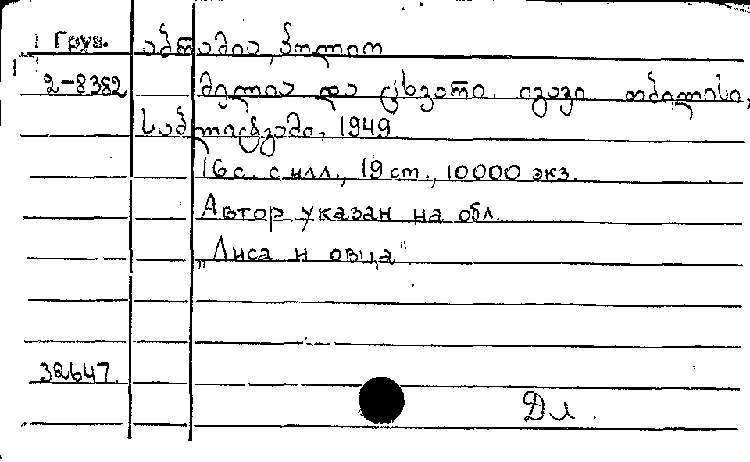 Груз. აბრამია, პოლიო
2-8382 მელია და ცხვარი. იგავი თბილისი,
საბლიტგამი, 1949
16 с. с илл., 19 ст., 10000 экз.
Автор указан на обл.
„Лиса и овца".
32647.
Дл.